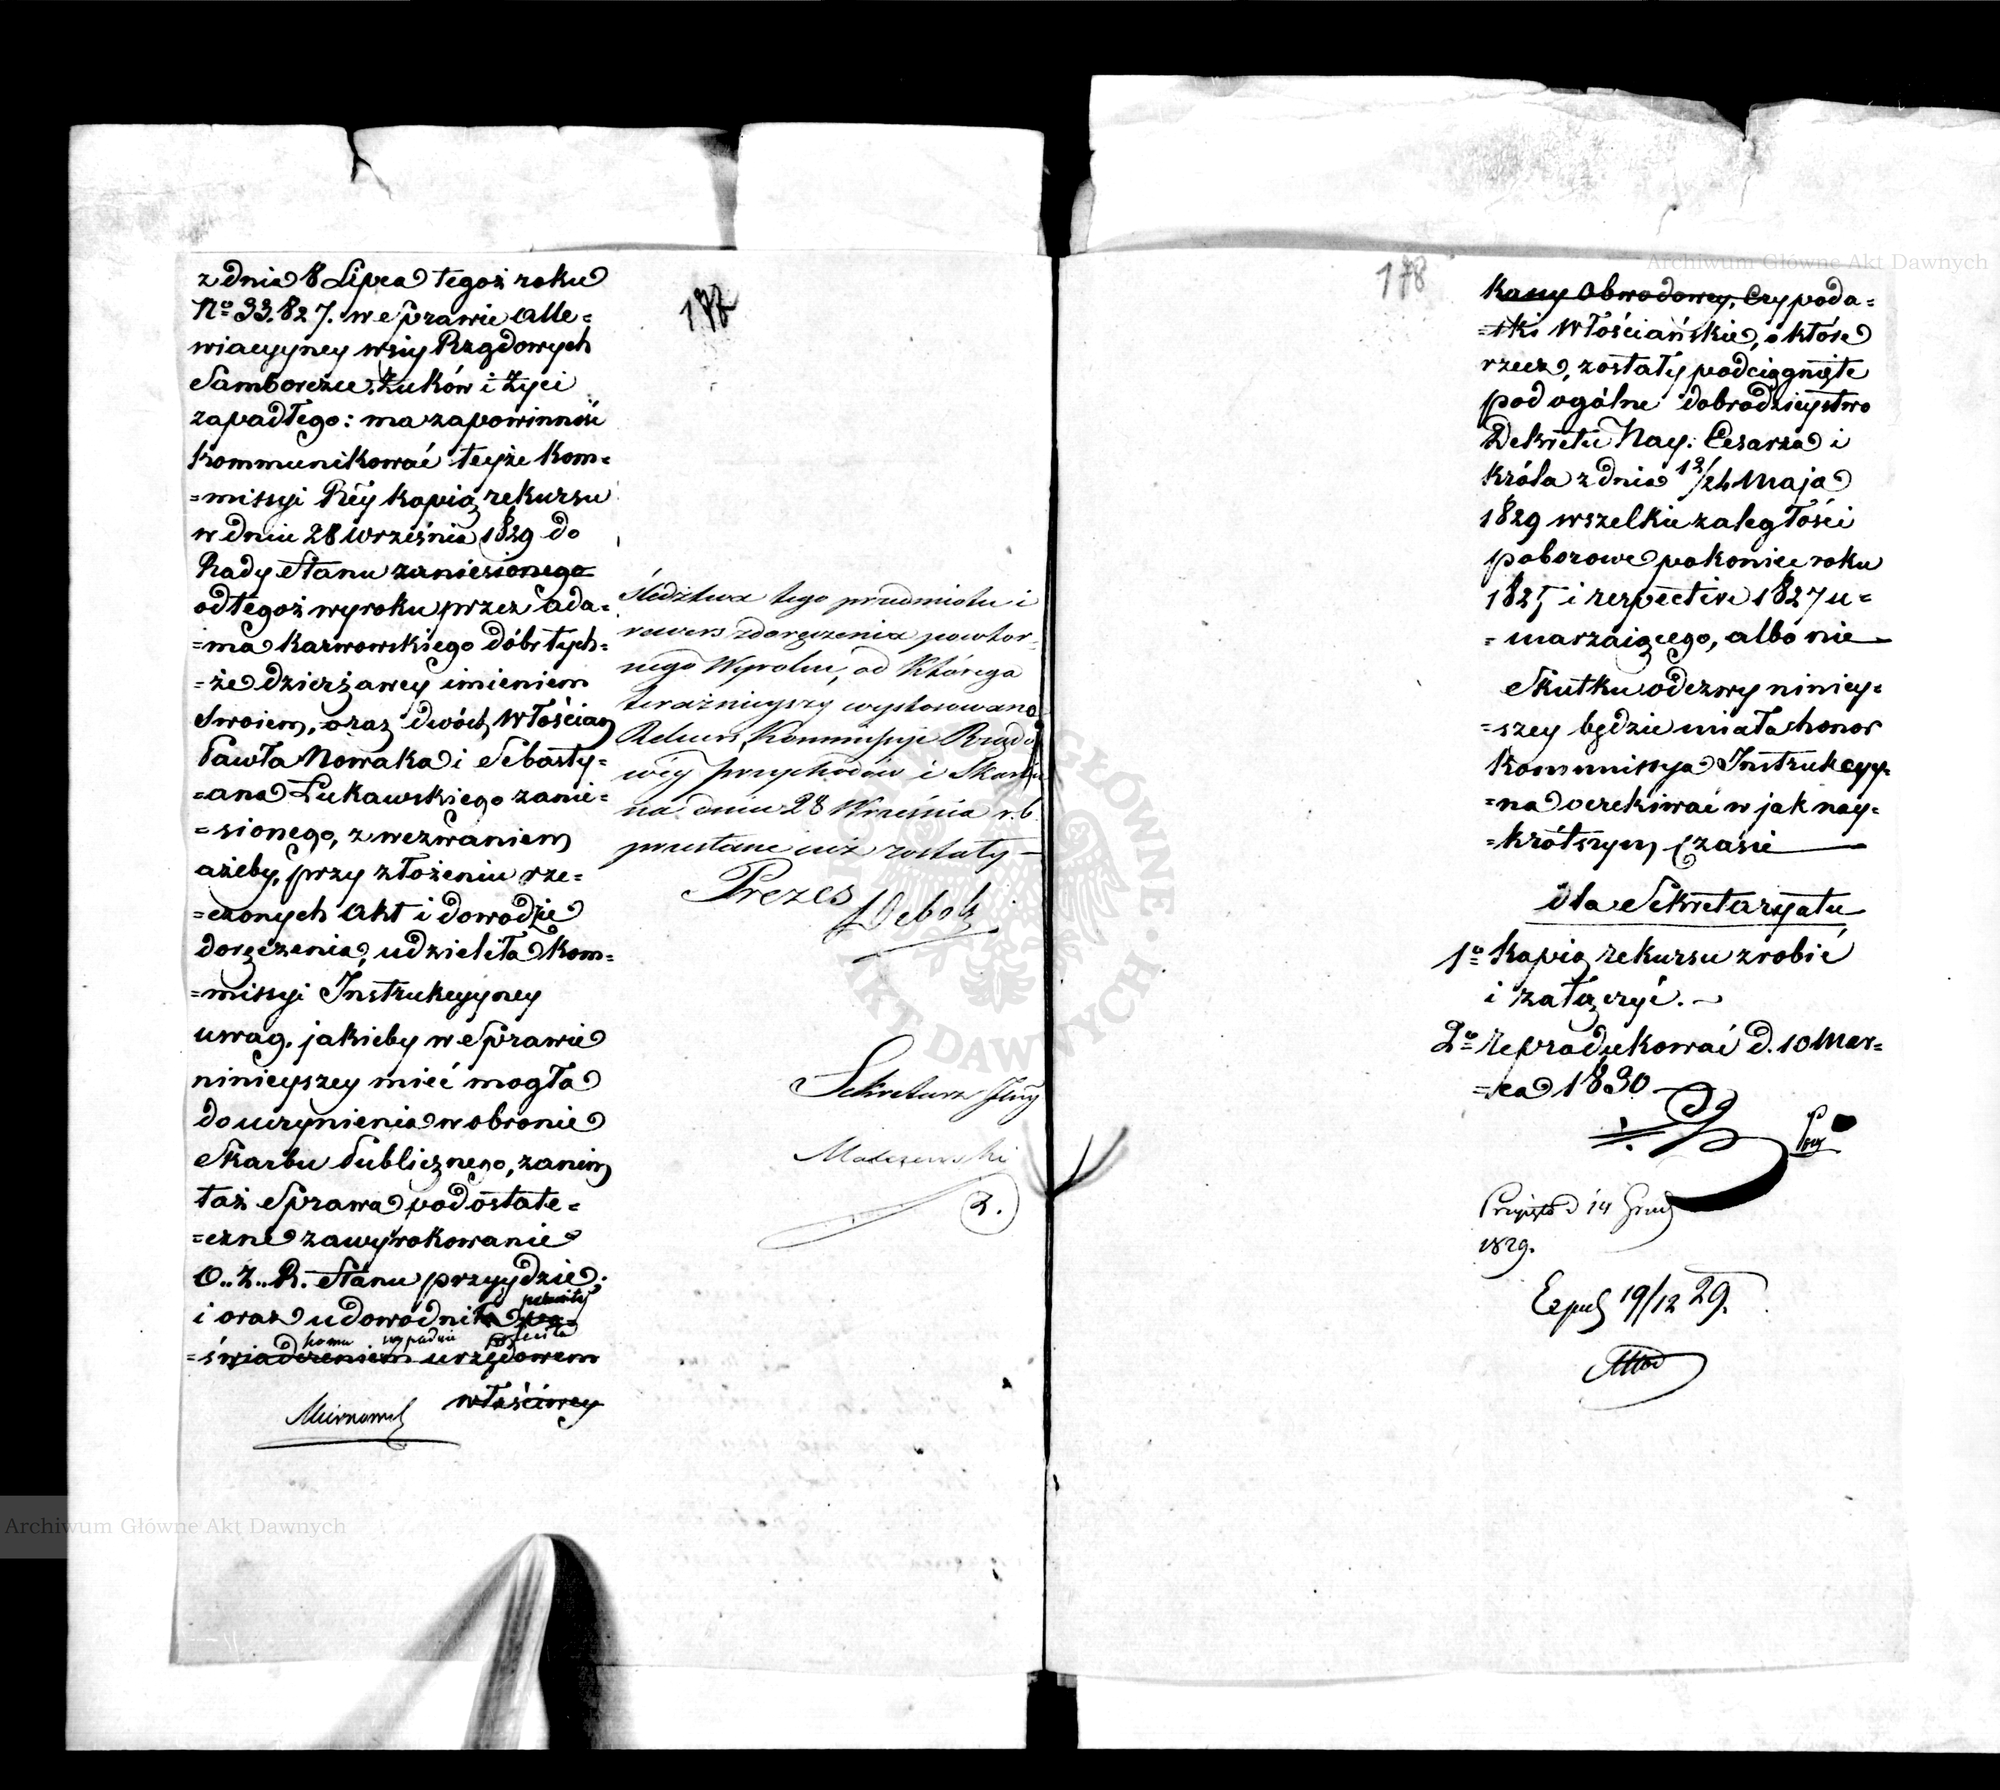 z dnia 8 Lipca tegoż roku
No 33.827. w Sprawie alle=
wiacyyney wsiy Rządowych
Samborzec, Żuków i Życi
zapadłego: ma za powinność
kommunikować teyże Kom=
=missyi Réy kopią rekursu
w dniu 28 Września 1829 do
Rady Stanu zaniesionego
od tegoż wyroku przez Ada=
=ma Karwowskiego dóbr tych=
=że dzierżawcy imieniem
Swoiem, oraz dwóch Włościan
Pawła Nowaka i Sebasty=
=ana Łukawskiego zanie=
=sionego, z wezwaniem
ażeby, przy złożeniu rze=
=czonych Akt i dowodzie
doręczenia, udzieliła Kom=
=missyi Instrukcyyney
uwag, jakieby w Sprawie
ninieyszey mieć mogła
do uczynienia w obronie
Skarbu Publicznego, zanim
taż Sprawa pod ostate=
=czne zawyrokowanie
O.. Z.. R. Stanu przyydzie;
i oraz udowodniła
komu wypadnie
=świadczeniem urzędowem
właściwey
177
Śledztwa tego przedmiotu i
rewers z doręczenia powtór-
nego Wyroku, od którego
teraźnieyszy wystosowano
Rekurs, Kommissyi Rządo
wéy Przychodów i Skarbu
na dniu 28 Września r. b.
przesłane iuż zostały —
Prezes
Sekretarz Jlny
2.
Archiwum Główne Akt Dawnych
178
Archiwum Główne Akt Dawnych
Kassy Obwodowey, Czy poda=
=tki Włościańskie, o które
rzecz, zostały podciągnięte
pod ogólne dobrodzieystwo
Dekretu Nay: Cesarza i
Króla z dnia 12/24 Maja
1829 wszelkie zaległości
poborowe po koniec roku
1825 i respective 1827 u=
=marzaiącego, albo nie —
Skutku odezwy niniey=
=szey będzie miała honor
Kommissya Instrukcyy=
=na oczekiwać w jak nay=
=krótszym czasie —
Dla Sekretaryatu
1o Kopią rekursu zrobić
i załączyć. —
2o Reprodukować d. 10 Mar=
=ca 1830
Przyięto d 14 Grud
1829.
Exped 19/12 29.
GŁÓWNE
AKT DAWNYCH